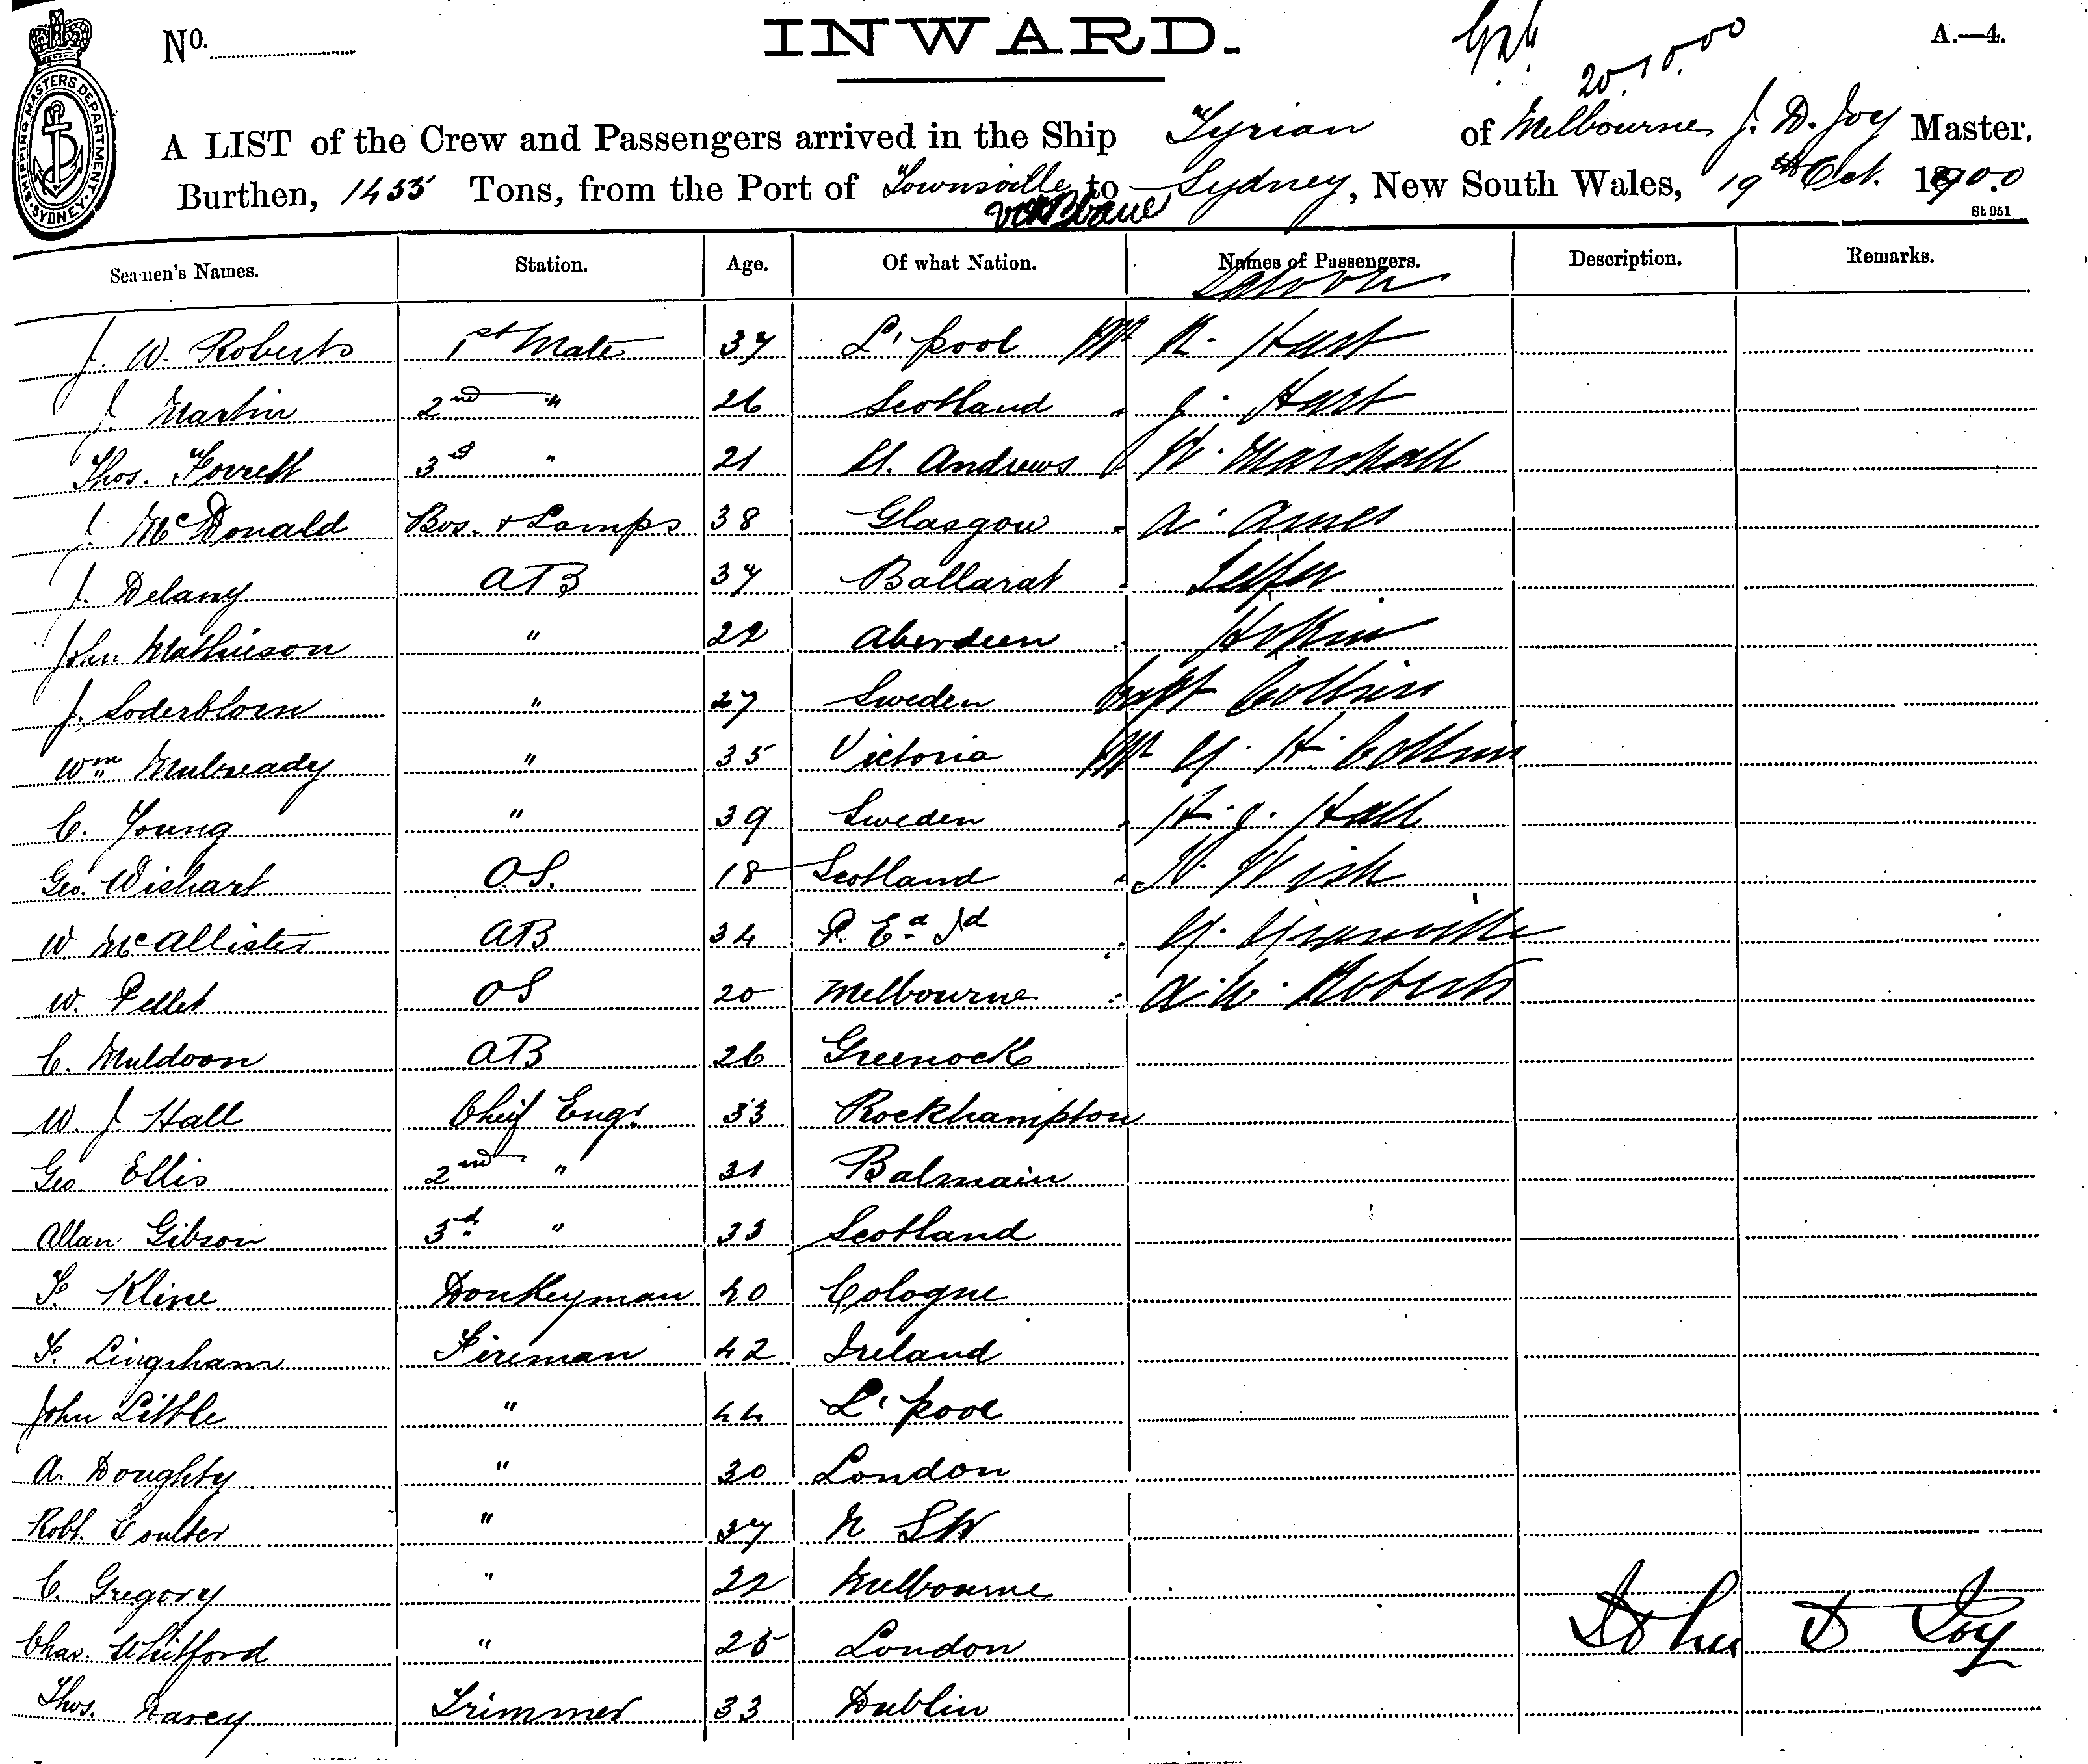 INWARD.
No.
A.—4.
20.10.00
SHIPPING MASTERS DEPARTMENT SYDNEY
A LIST of the Crew and Passengers arrived in the Ship Tyrian of Melbourne, J. D. Joy Master,
Burthen, 1455 Tons, from the Port of Townsville to Sydney, New South Wales, 19th Oct. 1900.
St 951
Seamen's Names. Station. Age. Of what Nation. Names of Passengers. Description. Remarks.
Saloon
J. W. Roberts 1st Mate 37 L'pool Mr R. Hart
J. Martin 2nd " 26 Scotland " J. Hart
Thos. Forrett 3d " 21 St. Andrews W. Marshall
J. McDonald Bos. & Lamps 38 Glasgow " A. Ames
J. Delany AB 37 Ballarat "
John Mathieson " 22 Aberdeen "
J. Soderblom " 27 Sweden Capt Collins
Wm Mulready " 35 Victoria Mr G. H. Collins
C. Young " 39 Sweden " H. J. Hall
Geo. Wishart O.S. 18 Scotland " W. Wish
W McAllister AB 34 P. Ed Id " G. Granville
W. Pellet OS 20 Melbourne " A. W. Roberts
C. Muldoon AB 26 Greenock
W. J Hall Chief Engr. 33 Rockhampton
Geo Ellis 2nd " 31 Balmain
Allan Gibson 3d " 33 Scotland
F. Kline Donkeyman 40 Cologne
F. Lingham Fireman 42 Ireland
John Little " 44 L'pool
A. Doughty " 30 London
Robt. Coulter " 37 N SW
C. Gregory " 22 Melbourne
Chas. Whitford " 25 London
John D Joy
Thos. Darcy Trimmer 33 Dublin